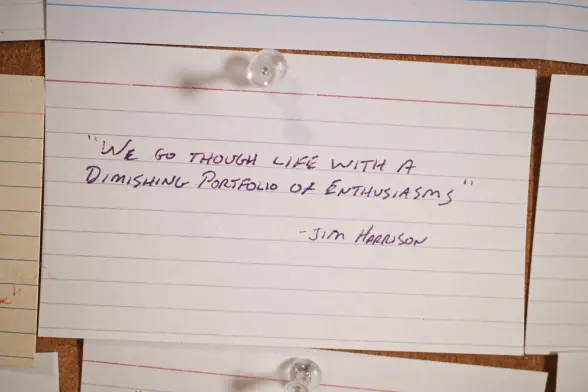 "WE GO THOUGH LIFE WITH A
DIMISHING PORTFOLIO OF ENTHUSIASMS"
-JIM HARRISON